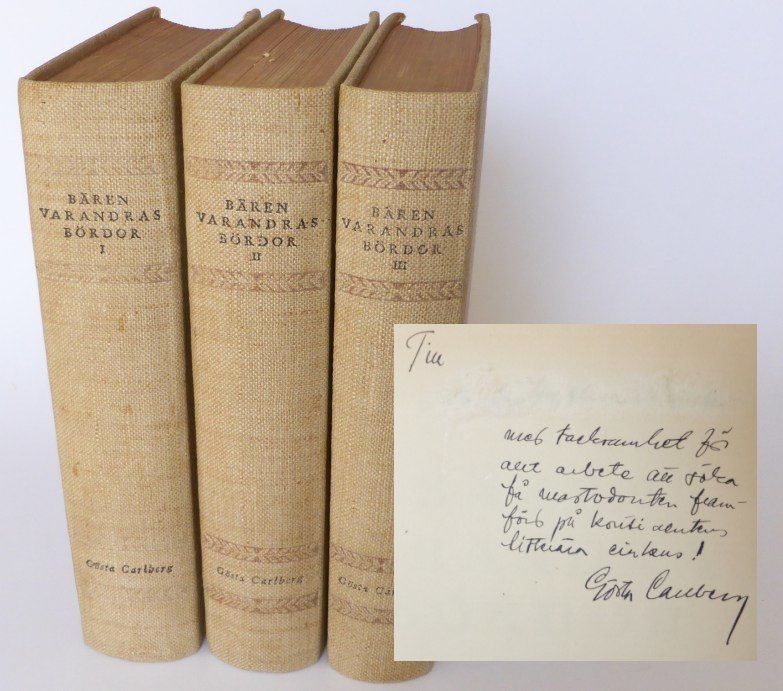 BÄREN
VARANDRAS
BÖRDOR
I
Gösta Carlberg
BÄREN
VARANDRAS
BÖRDOR
II
Gösta Carlberg
BÄREN
VARANDRAS
BÖRDOR
III
Gösta Carlb
Till
med tacksamhet för
allt arbete att söka
få mastodonten fram-
förd på kontinentens
litterära cirkus!
Gösta Carlberg